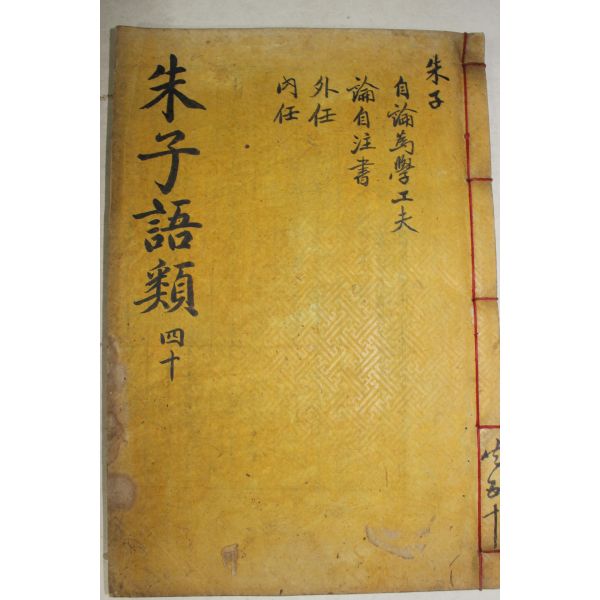 朱子
自論為學工夫
論自注書
外任
內任
朱子語類 四十
共五十